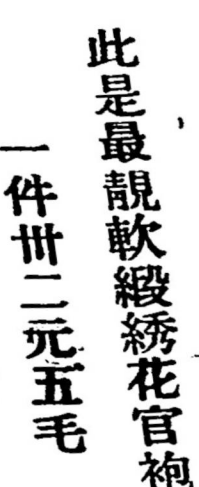 此是最靚軟緞綉花官袍
一件卅二元五毛